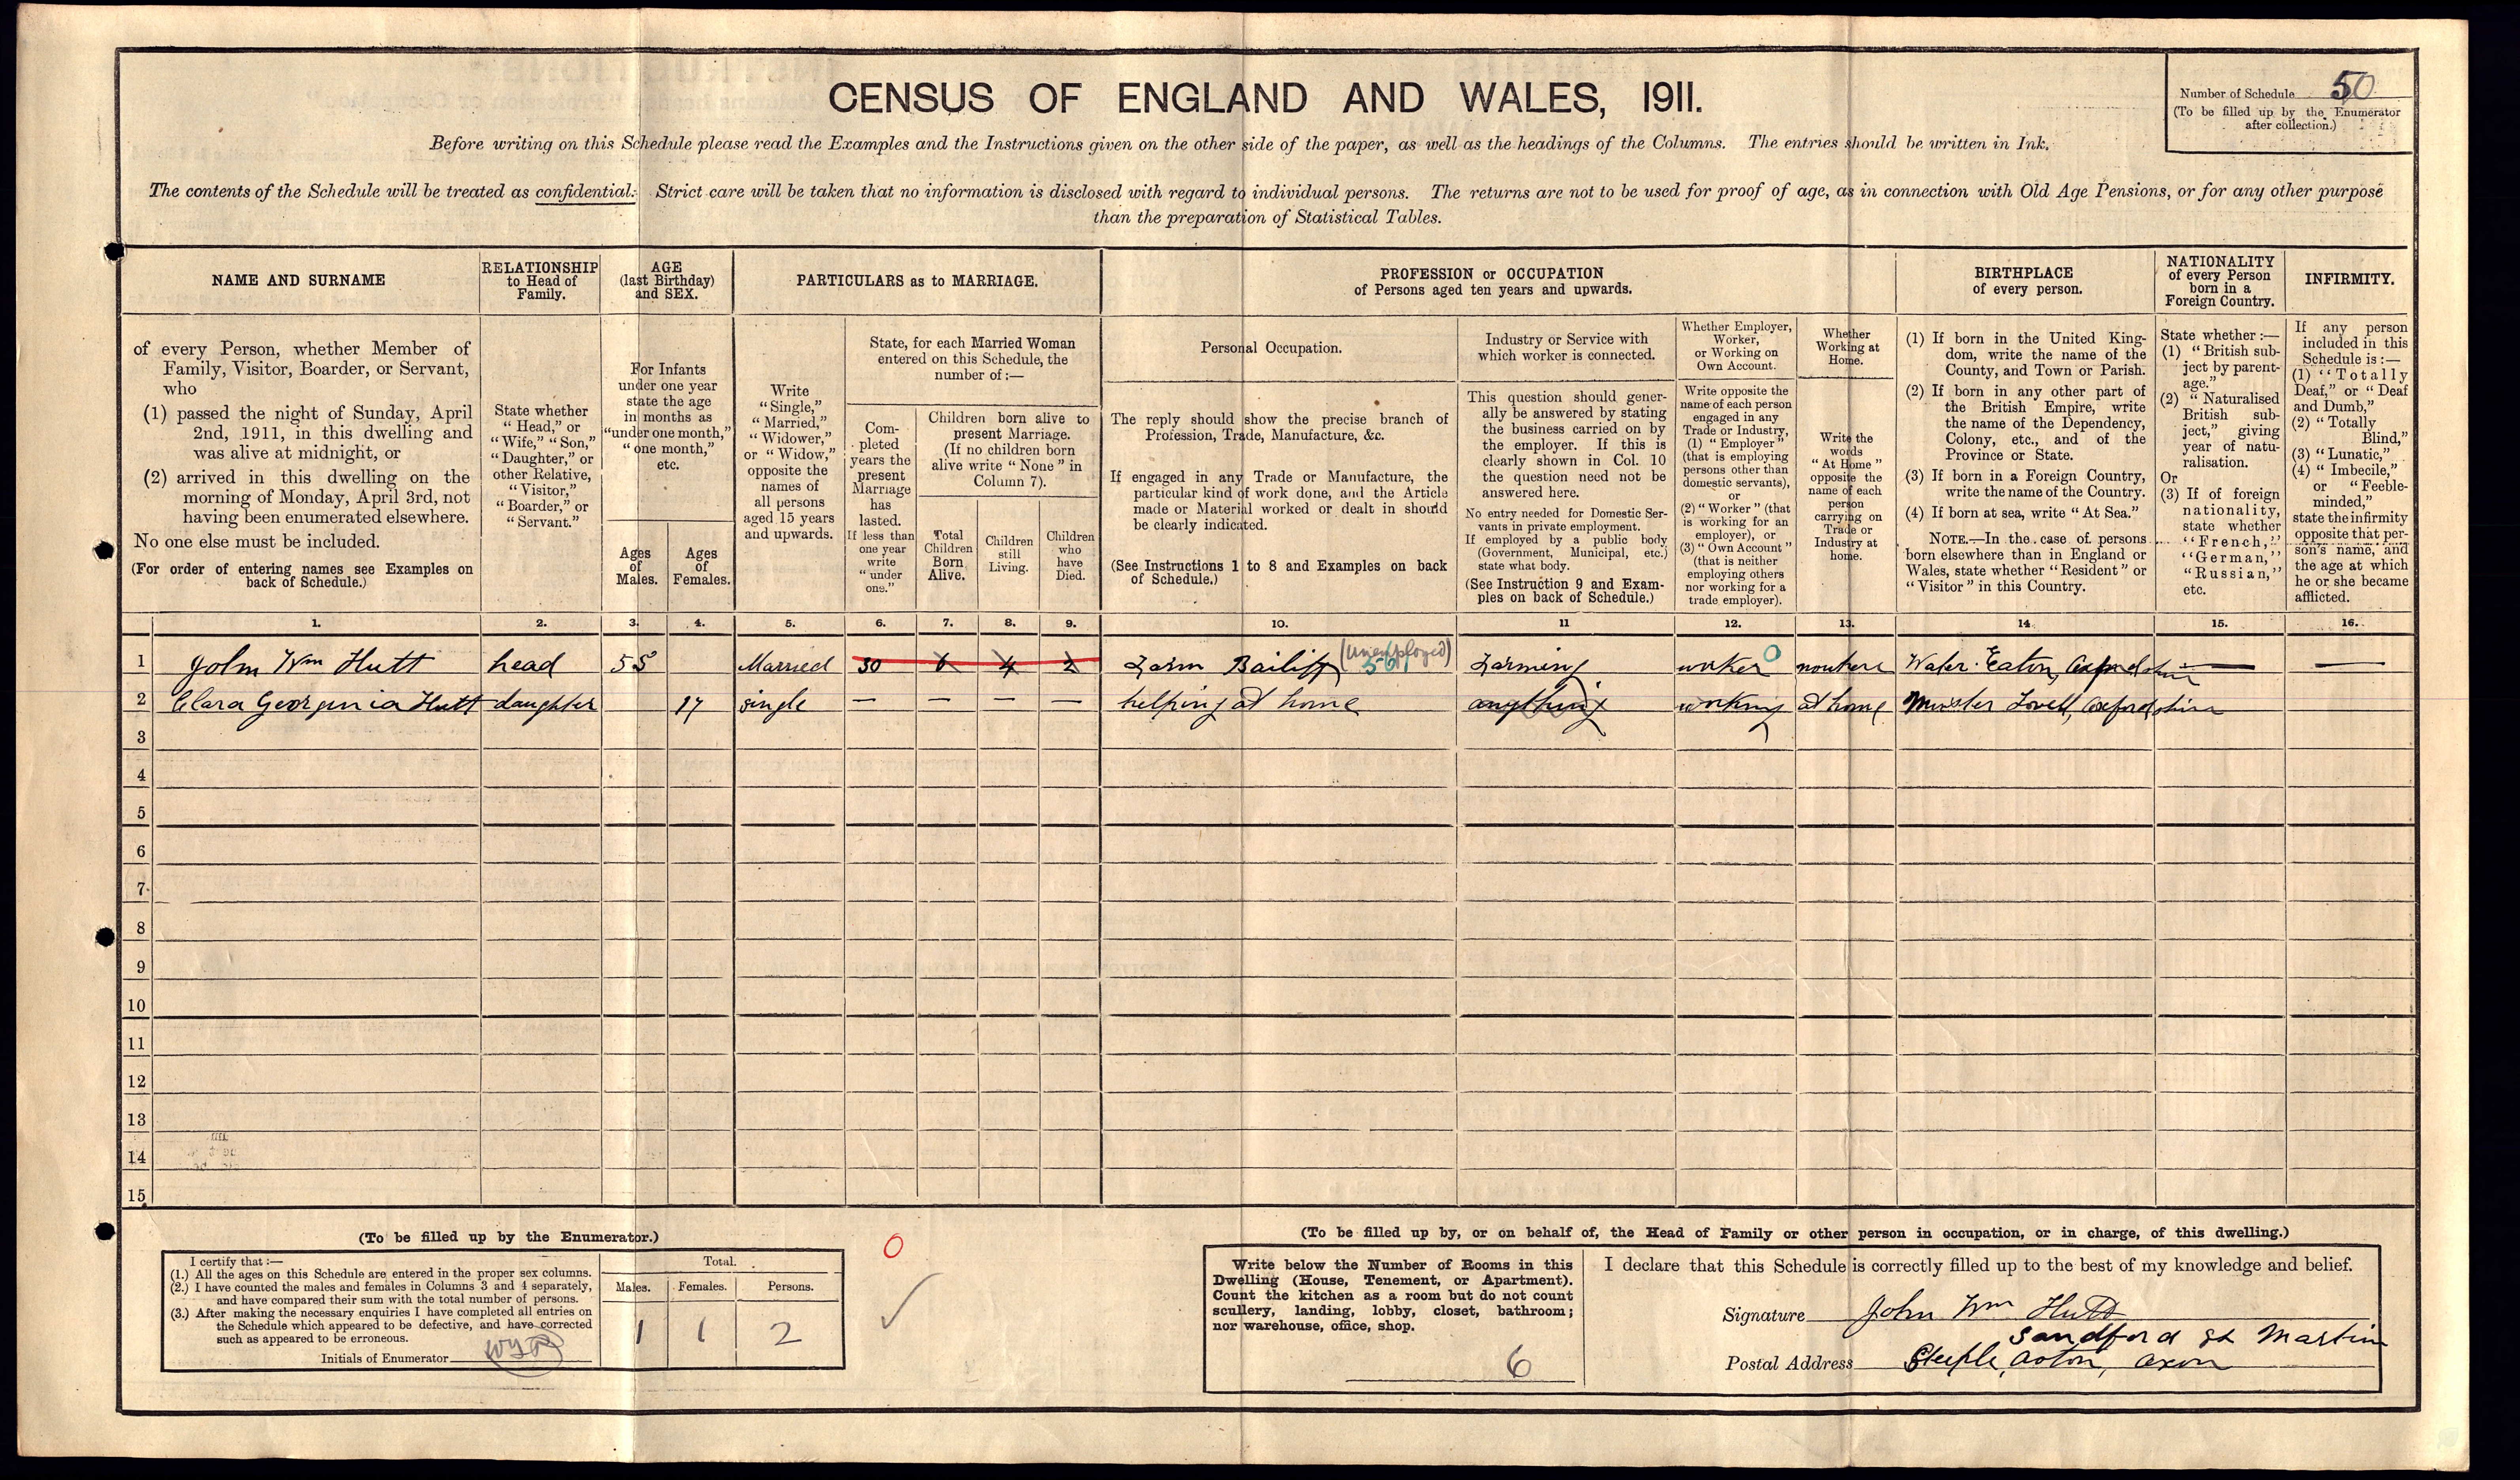 CENSUS OF ENGLAND AND WALES, 1911.
Number of Schedule 50
(To be filled up by the Enumerator
after collection.)
Before writing on this Schedule please read the Examples and the Instructions given on the other side of the paper, as well as the headings of the Columns. The entries should be written in Ink.
The contents of the Schedule will be treated as confidential. Strict care will be taken that no information is disclosed with regard to individual persons. The returns are not to be used for proof of age, as in connection with Old Age Pensions, or for any other purpose
than the preparation of Statistical Tables.
NAME AND SURNAME
of every Person, whether Member of
Family, Visitor, Boarder, or Servant,
who
(1) passed the night of Sunday, April
2nd, 1911, in this dwelling and
was alive at midnight, or
(2) arrived in this dwelling on the
morning of Monday, April 3rd, not
having been enumerated elsewhere.
No one else must be included.
(For order of entering names see Examples on
back of Schedule.)
RELATIONSHIP
to Head of
Family.
State whether
"Head," or
"Wife," "Son,"
"Daughter," or
other Relative,
"Visitor,"
"Boarder," or
"Servant."
AGE
(last Birthday)
and SEX.
For Infants
under one year
state the age
in months as
"under one month,"
"one month,"
etc.
Ages
of
Males.
Ages
of
Females.
PARTICULARS as to MARRIAGE.
Write
"Single,"
"Married,"
"Widower,"
or "Widow,"
opposite the
names of
all persons
aged 15 years
and upwards.
State, for each Married Woman
entered on this Schedule, the
number of:—
Com-
pleted
years the
present
Marriage
has
lasted.
If less than
one year
write
"under
one."
Children born alive to
present Marriage.
(If no children born
alive write "None" in
Column 7).
Total
Children
Born
Alive.
Children
still
Living.
Children
who
have
Died.
PROFESSION or OCCUPATION
of Persons aged ten years and upwards.
Personal Occupation.
The reply should show the precise branch of
Profession, Trade, Manufacture, &c.
If engaged in any Trade or Manufacture, the
particular kind of work done, and the Article
made or Material worked or dealt in should
be clearly indicated.
(See Instructions 1 to 8 and Examples on back
of Schedule.)
Industry or Service with
which worker is connected.
This question should gener-
ally be answered by stating
the business carried on by
the employer. If this is
clearly shown in Col. 10
the question need not be
answered here.
No entry needed for Domestic Ser-
vants in private employment.
If employed by a public body
(Government, Municipal, etc.)
state what body.
(See Instruction 9 and Exam-
ples on back of Schedule.)
Whether Employer,
Worker,
or Working on
Own Account.
Write opposite the
name of each person
engaged in any
Trade or Industry,
(1) "Employer"
(that is employing
persons other than
domestic servants),
or
(2) "Worker" (that
is working for an
employer), or
(3) "Own Account"
(that is neither
employing others
nor working for a
trade employer).
Whether
Working at
Home.
Write the
words
"At Home"
opposite the
name of each
person
carrying on
Trade or
Industry at
home.
BIRTHPLACE
of every person.
(1) If born in the United King-
dom, write the name of the
County, and Town or Parish.
(2) If born in any other part of
the British Empire, write
the name of the Dependency,
Colony, etc., and of the
Province or State.
(3) If born in a Foreign Country,
write the name of the Country.
(4) If born at sea, write "At Sea."
NOTE.—In the case of persons
born elsewhere than in England or
Wales, state whether "Resident" or
"Visitor" in this Country.
NATIONALITY
of every Person
born in a
Foreign Country.
State whether :—
(1) "British sub-
ject by parent-
age."
(2) "Naturalised
British sub-
ject," giving
year of natu-
ralisation.
Or
(3) If of foreign
nationality,
state whether
"French,"
"German,"
"Russian,"
etc.
INFIRMITY.
If any person
included in this
Schedule is:—
(1) "Totally
Deaf," or "Deaf
and Dumb,"
(2) "Totally
Blind,"
(3) "Lunatic,"
(4) "Imbecile,"
or "Feeble-
minded,"
state the infirmity
opposite that per-
son's name, and
the age at which
he or she became
afflicted.
1. 2. 3. 4. 5. 6. 7. 8. 9. 10. 11 12. 13. 14 15. 16.
1 John Wm Hutt head 55 Married 30 6 4 2 Farm Bailiff (Unemployed) 561 Farming worker 0 nowhere Water Eaton, Oxfordshire — —
2 Clara Georginia Hutt daughter 17 single — — — — helping at home anything working at home Minster Lovell, Oxfordshire
3
4
5
6
7
8
9
10
11
12
13
14
15
(To be filled up by the Enumerator.)
I certify that:—
(1.) All the ages on this Schedule are entered in the proper sex columns.
(2.) I have counted the males and females in Columns 3 and 4 separately,
and have compared their sum with the total number of persons.
(3.) After making the necessary enquiries I have completed all entries on
the Schedule which appeared to be defective, and have corrected
such as appeared to be erroneous.
Initials of Enumerator
Total.
Males. Females. Persons.
1 1 2
0
(To be filled up by, or on behalf of, the Head of Family or other person in occupation, or in charge, of this dwelling.)
Write below the Number of Rooms in this
Dwelling (House, Tenement, or Apartment).
Count the kitchen as a room but do not count
scullery, landing, lobby, closet, bathroom;
nor warehouse, office, shop.
6
I declare that this Schedule is correctly filled up to the best of my knowledge and belief.
Signature John Wm Hutt
Sandford St Martin
Postal Address Steeple Aston, Oxon